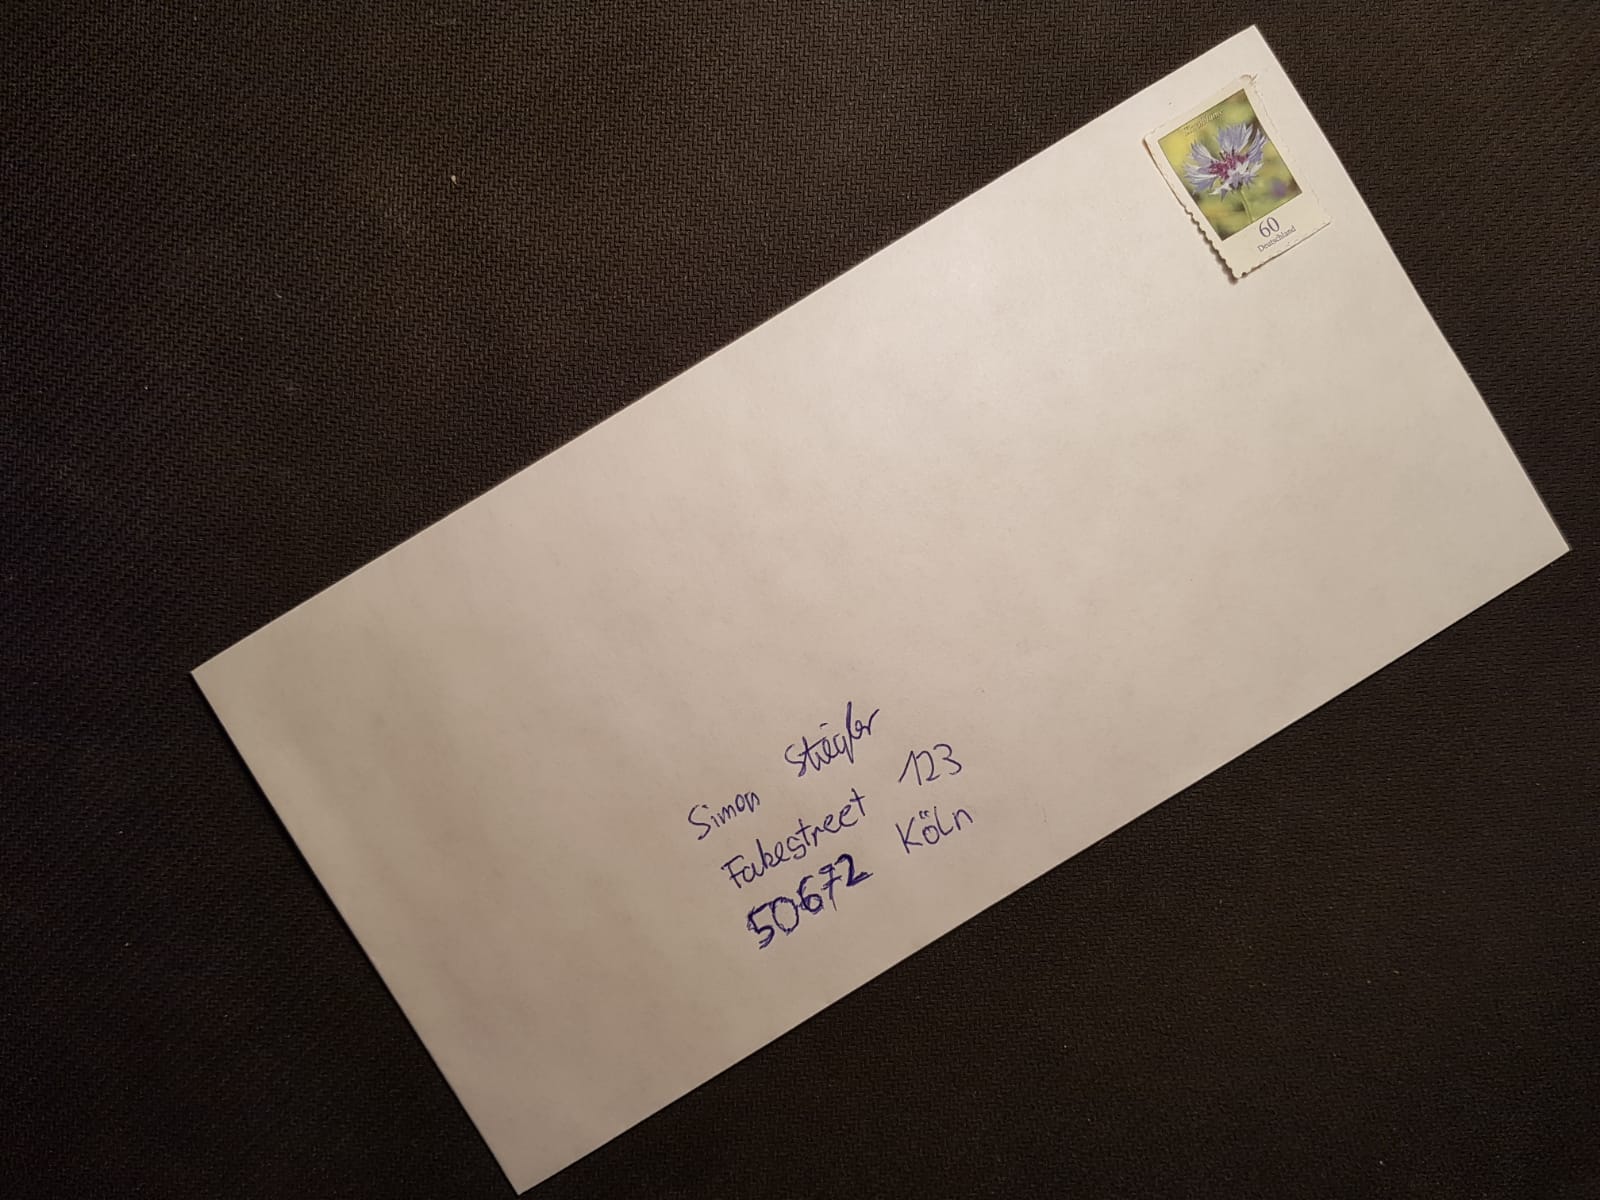 Kornblume
60
Deutschland
Simon Stiegler
Fakestreet 123
50672 Köln